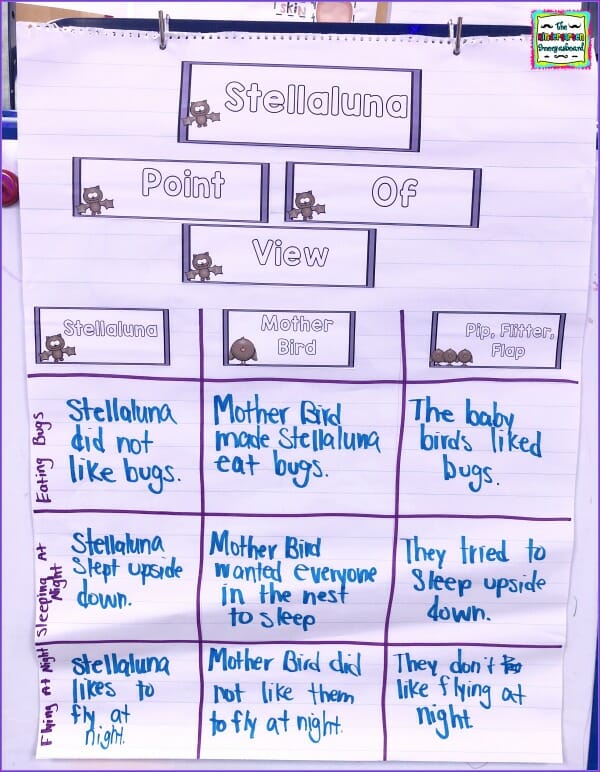 skin
The
Kindergarten
Smorgasboard
Stellaluna
Point
Of
View
Stellaluna
Mother
Bird
Pip, Flitter,
Flap
Eating Bugs
Stellaluna
did not
like bugs.
Mother Bird
made Stellaluna
eat bugs.
The baby
birds liked
bugs.
Sleeping At
Night
Stellaluna
slept upside
down.
Mother Bird
wanted everyone
in the nest
to sleep
They tried to
sleep upside
down.
Flying At Night
Stellaluna
likes to
fly at
night.
Mother Bird did
not like them
to fly at night.
They don't
like flying at
night